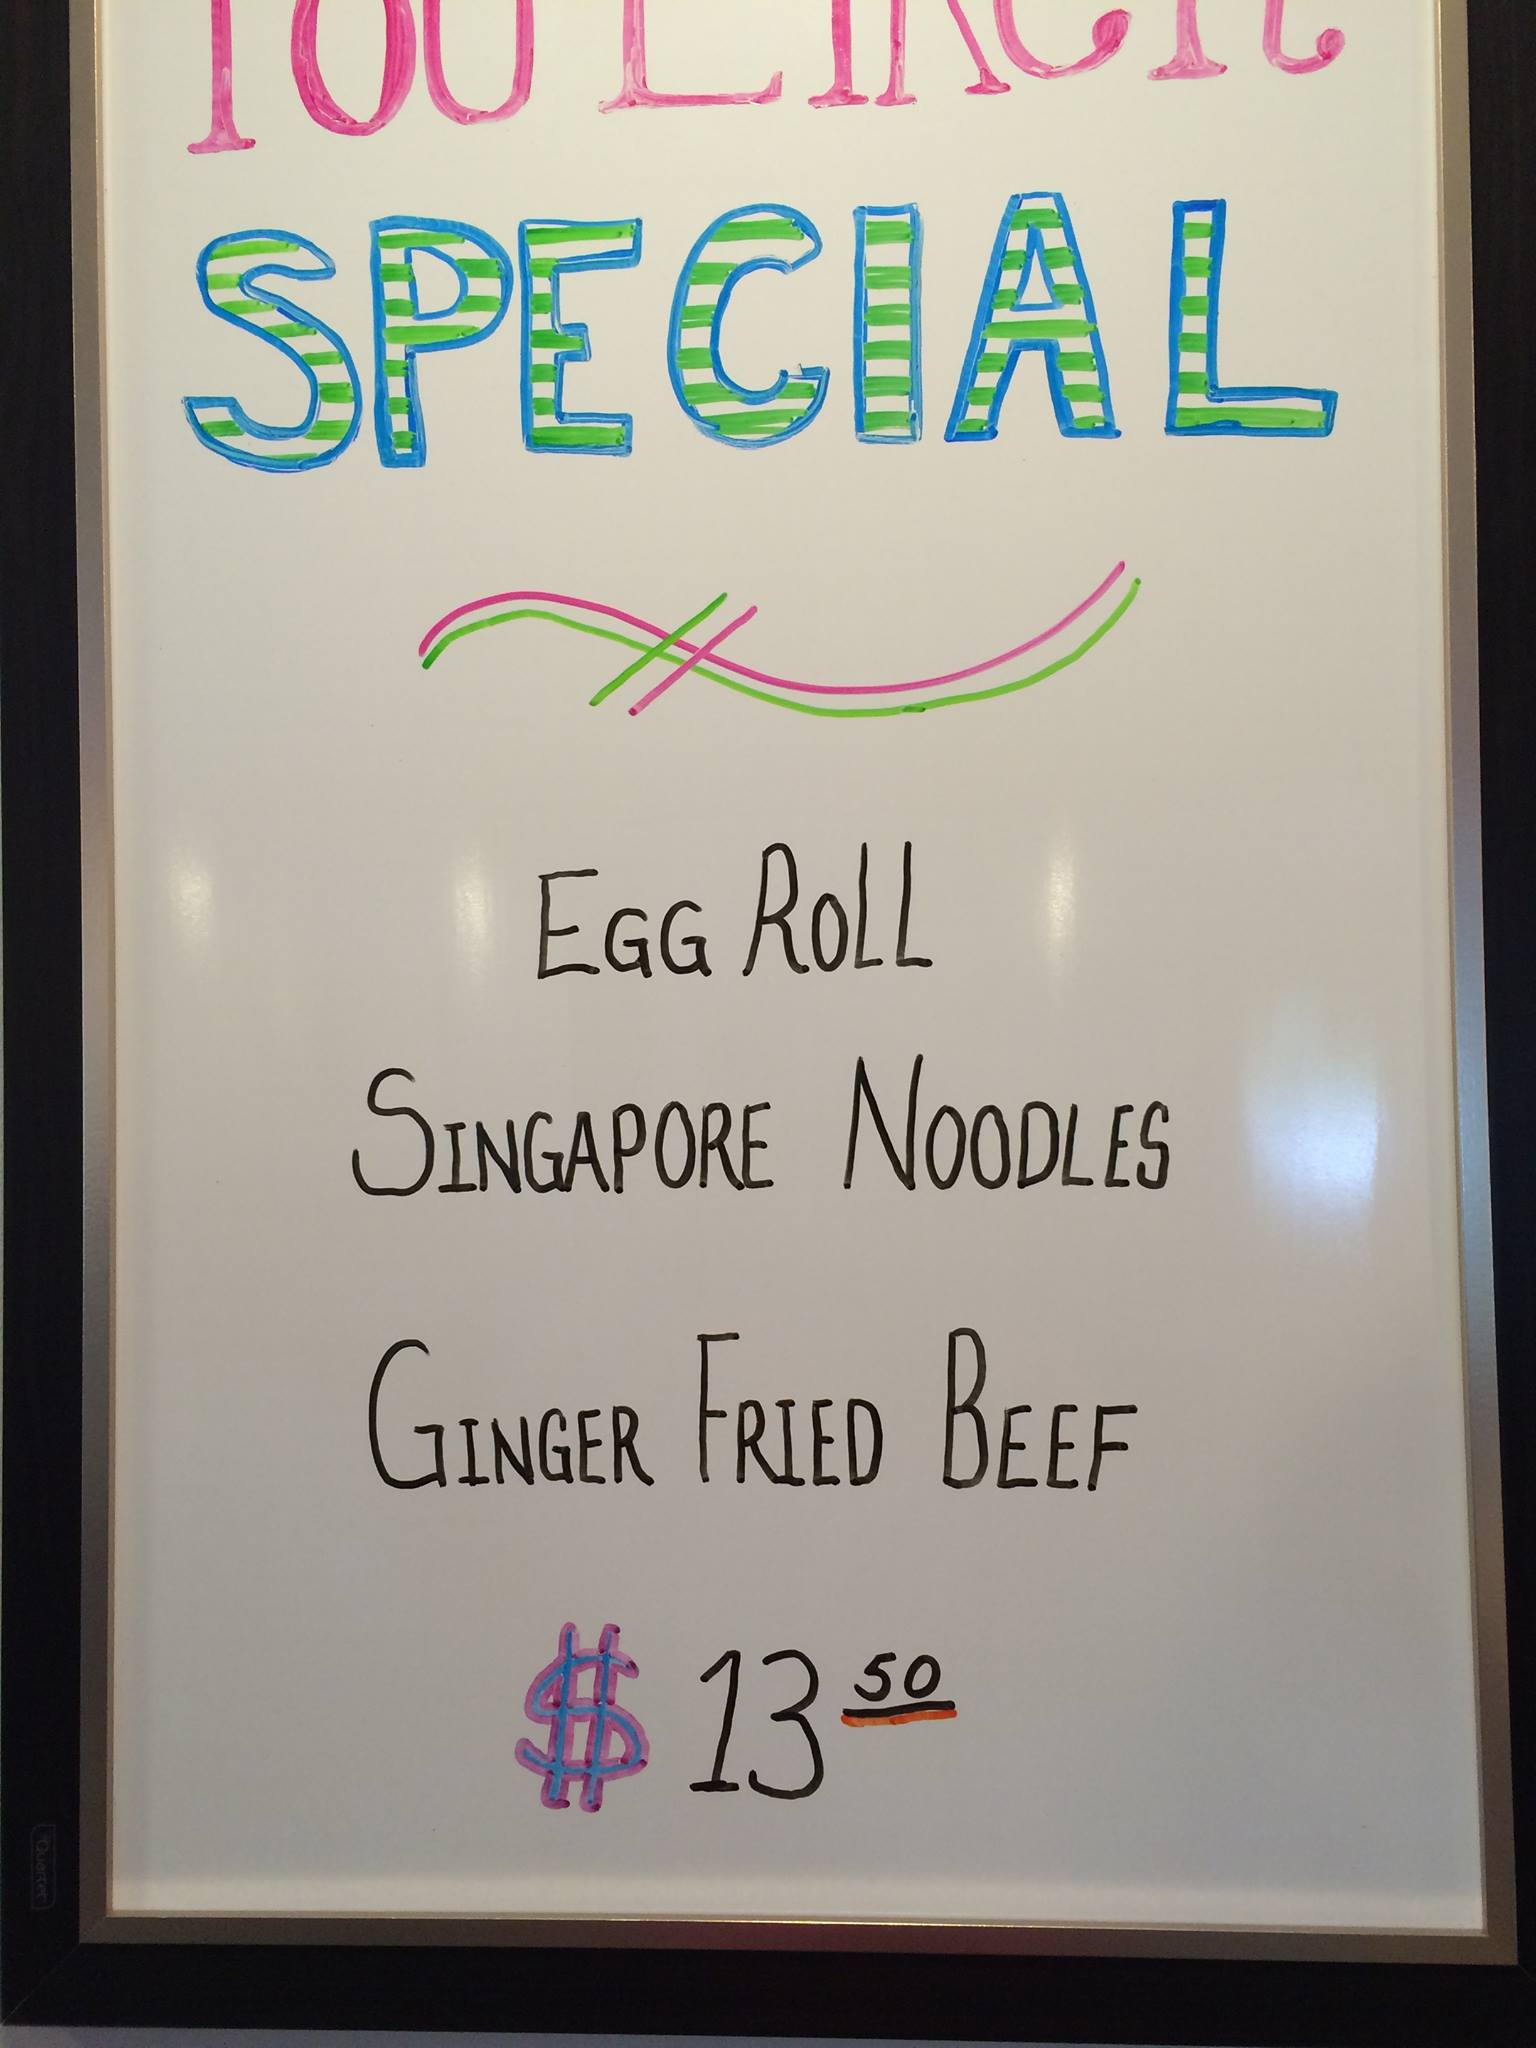 YOU LIKE IT
SPECIAL
EGG ROLL
SINGAPORE NOODLES
GINGER FRIED BEEF
$ 13 50
Quartet